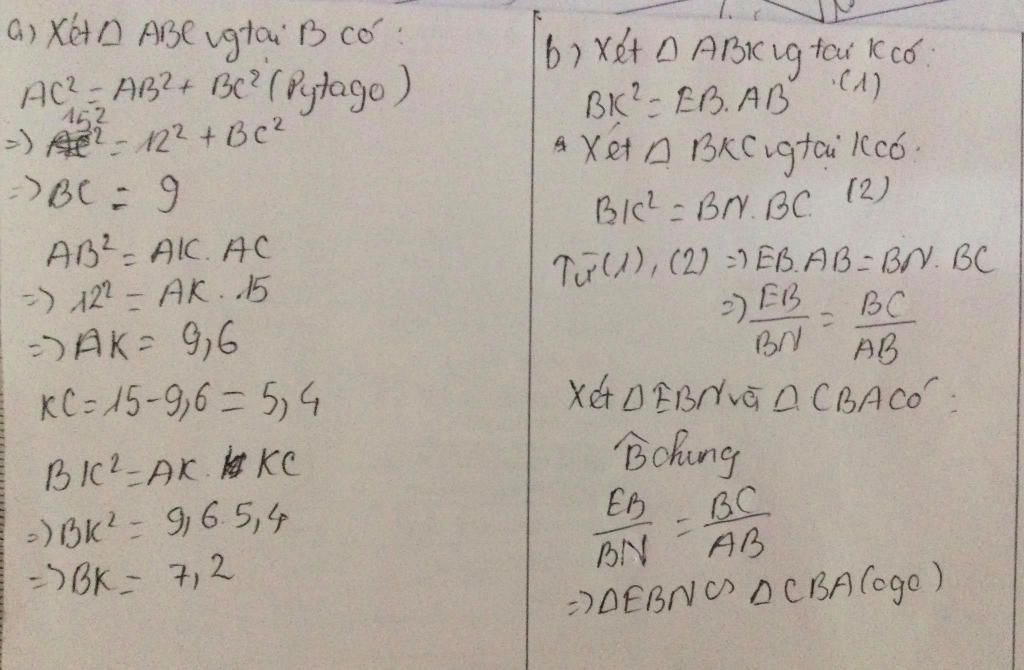 a) Xét Δ ABC vg tại B có:
AC² = AB² + BC² (Pytago)
=> 15² = 12² + BC²
=> BC = 9
AB² = AK. AC
=> 12² = AK . 15
=> AK = 9,6
KC = 15-9,6 = 5,4
BK² = AK. KC
=> BK² = 9,6.5,4
=> BK = 7,2
b) Xét Δ ABK vg tại K có:
BK² = EB. AB (1)
* Xét Δ BKC vg tại K có:
BK² = BN. BC. (2)
Từ (1), (2) => EB.AB = BN. BC
=> EB/BN = BC/AB
Xét Δ EBN và Δ CBA có:
B̂ chung
EB/BN = BC/AB
=> Δ EBN ∽ Δ CBA (cgc)